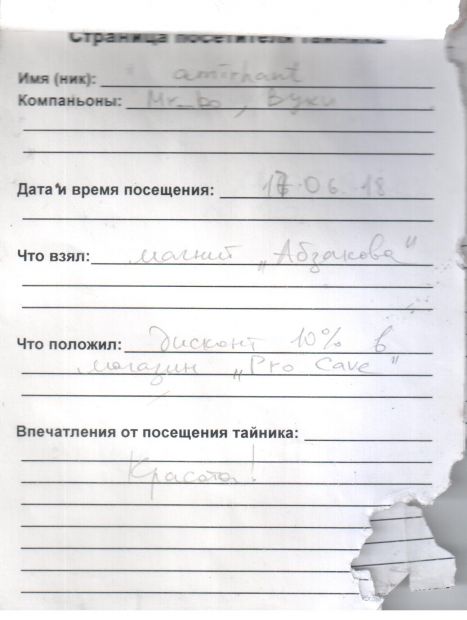 Страница посетителя тайника
Имя (ник): amirhant
Компаньоны: Mr_bo, Вуки
Дата и время посещения: 17.06.18
Что взял: магнит „Абзакова"
Что положил: Дисконт 10% в
магазин „Pro Cave"
Впечатления от посещения тайника:
Красота!